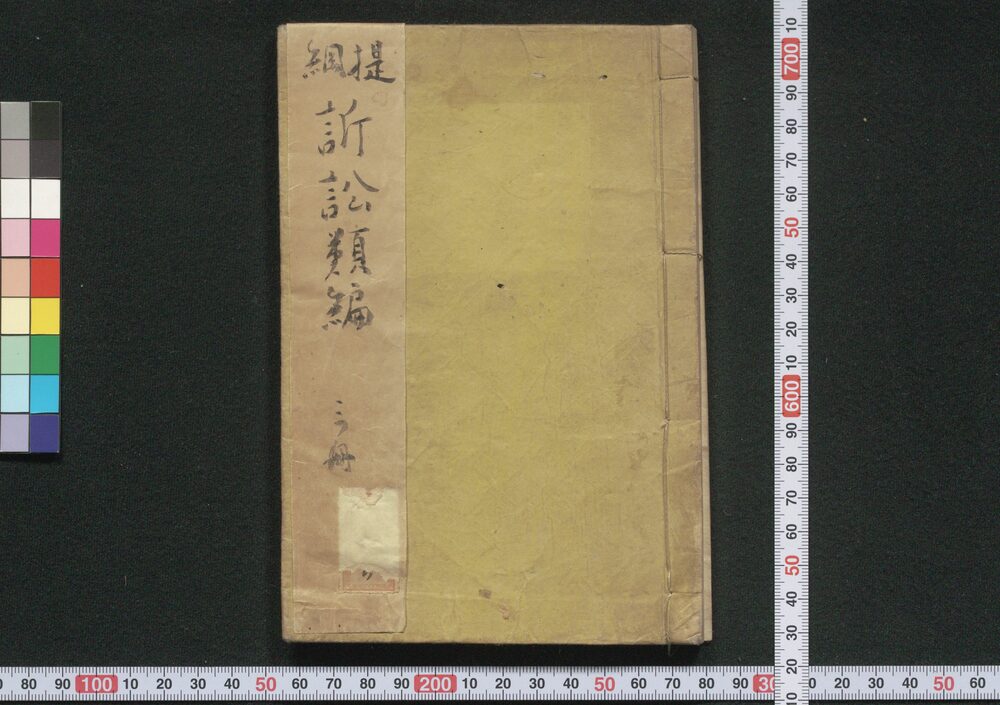 提綱
訴訟類編
三冊
80 90 100 10 20 30 40 50 60 70 80 90 200 10 20 30 40 50 60 70 80 90 30 20 30 40 50 60
10 700 90 80 70 60 50 40 30 20 10 600 90 80 70 60 50 40 30 20 10